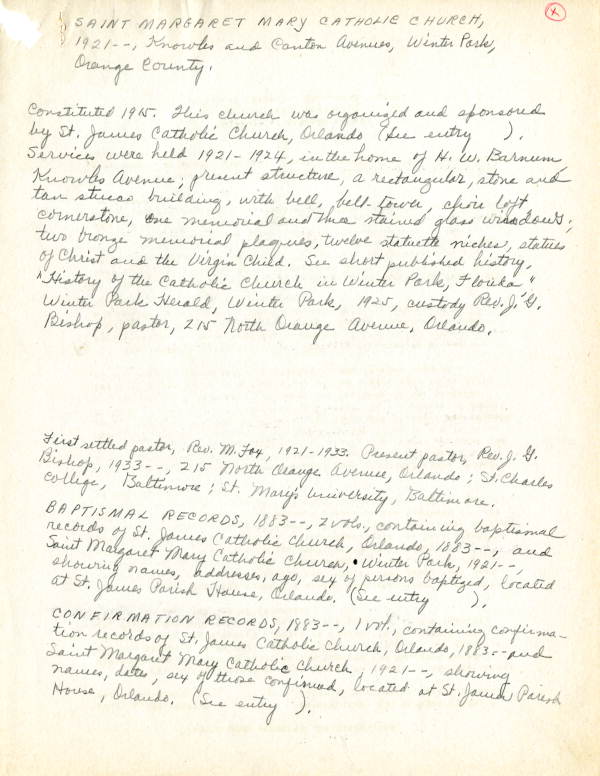 SAINT MARGARET MARY CATHOLIC CHURCH,
1921--, Knowles and Canton Avenues, Winter Park,
Orange County.
Constituted 1915. This church was organized and sponsored
by St. James Catholic Church, Orlando (See entry ).
Services were held 1921-1924, in the home of H. W. Barnum
Knowles Avenue; present structure, a rectangular, stone and
tan stucco building, with bell, bell tower, choir loft
cornerstone, one memorial and three stained glass windows;
two bronze memorial plaques, twelve statuette niches, statues
of Christ and the Virgin Child. See short published history,
"History of the Catholic Church in Winter Park, Florida"
Winter Park Herald, Winter Park, 1925, custody Rev. J. G.
Bishop, pastor, 215 North Orange Avenue, Orlando.
First settled pastor, Rev. M. Fox, 1921-1933. Present pastor, Rev. J. G.
Bishop, 1933--, 215 North Orange Avenue, Orlando; St. Charles
College, Baltimore; St. Mary's University, Baltimore.
BAPTISMAL RECORDS, 1883--, 2 vols., containing baptismal
records of St. James Catholic Church, Orlando, 1883--, and
Saint Margaret Mary Catholic Church, Winter Park, 1921--,
showing names, addresses, age, sex of persons baptized, located
at St. James Parish House, Orlando. (See entry ).
CONFIRMATION RECORDS, 1883--, 1 vol., containing confirma-
tion records of St. James Catholic Church, Orlando, 1883-- and
Saint Margaret Mary Catholic Church, 1921--, showing
names, dates, sex of those confirmed, located at St. James Parish
House, Orlando. (See entry ).